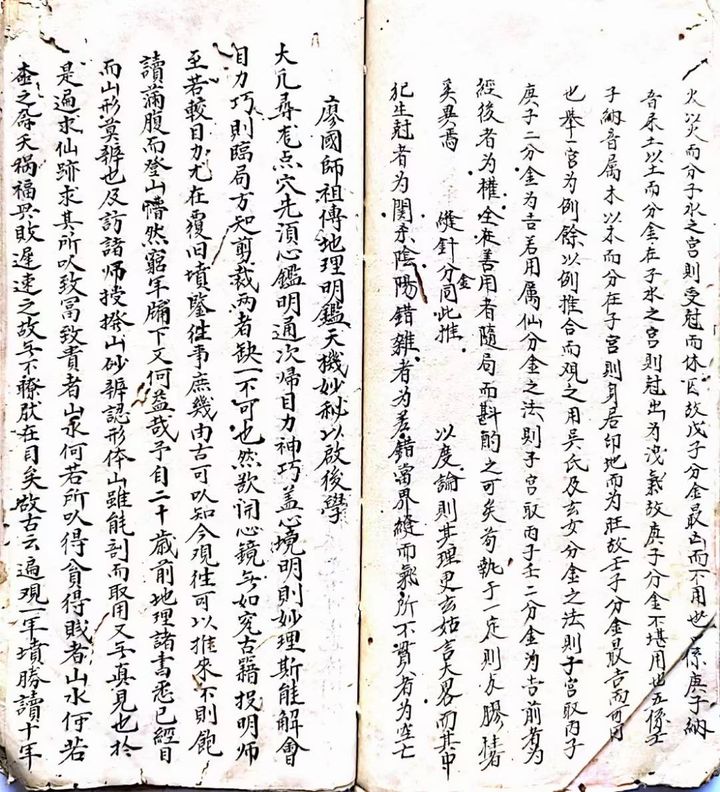 火以火而分子水之宮則受尅而休囚故戊子分金最凶而不用也係庚子納
音屬土以土而分金在子水之宮則尅出为洩氣故庚子分金不堪用也五係壬
子納音属木以木而分在子宮則身居印地而为旺故壬子分金最吉而可用
也舉一宮为例餘以例推合而观之用吳氏及玄女分金之法則子宮取丙子
庚子二分金为吉若用属仙分金之法則子宮取丙子壬二分金为吉前者为
經後者为權全在善用者隨局而斟酌之可矣苟執于一定則與膠者
奚異焉 縫針分金同此推 以度論則其理更玄姑言大畧而其中
犯生尅者为関系陰陽錯雜者为差錯當界縫而氣所不貫者为空亡
廖國師祖傳地理明鑑天機妙秘以啟後學
大凡尋龙点穴先須心鑑明通次帰目力神巧盖心境明則妙理斯能解會
目力巧則臨局方知剪裁两者缺一不可也然欲開心鏡无如究古籍投明師
至若較目力尤在覆旧墳鑒往事庶幾由古可以知今观往可以推來不則飽
讀滿腹而登山懵然窮年牖下又何益哉予自二十歲前地理諸書悉已經目
而山形莫辨也及訪諸师授撥山砂辨認形体山雖能剖而取用又无真見也於
是遍求仙跡求其所以致富致貴者山水何若所以得貧得賤者山水何若
查之為天禍福興敗遲速之故无不瞭肰在目矣故古云遍观一年墳勝讀十年